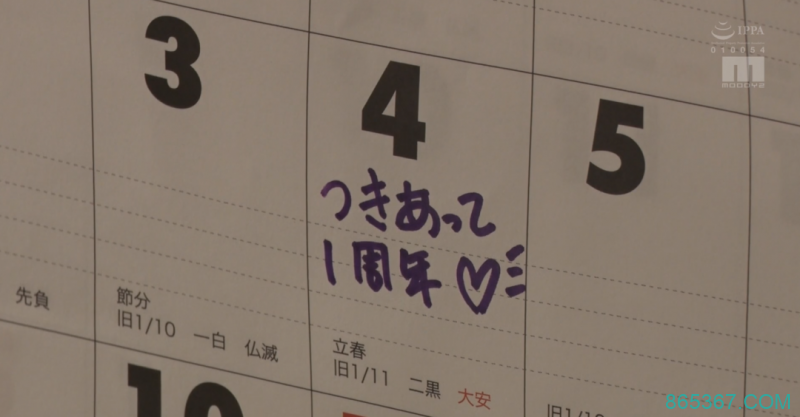 IPPA
010054
M
MOODYZ
3
4
5
つきあって
1周年♡
先負
節分
旧1/10 一白 仏滅
立春
旧1/11 二黒 大安
旧1/12
10
865367.COM